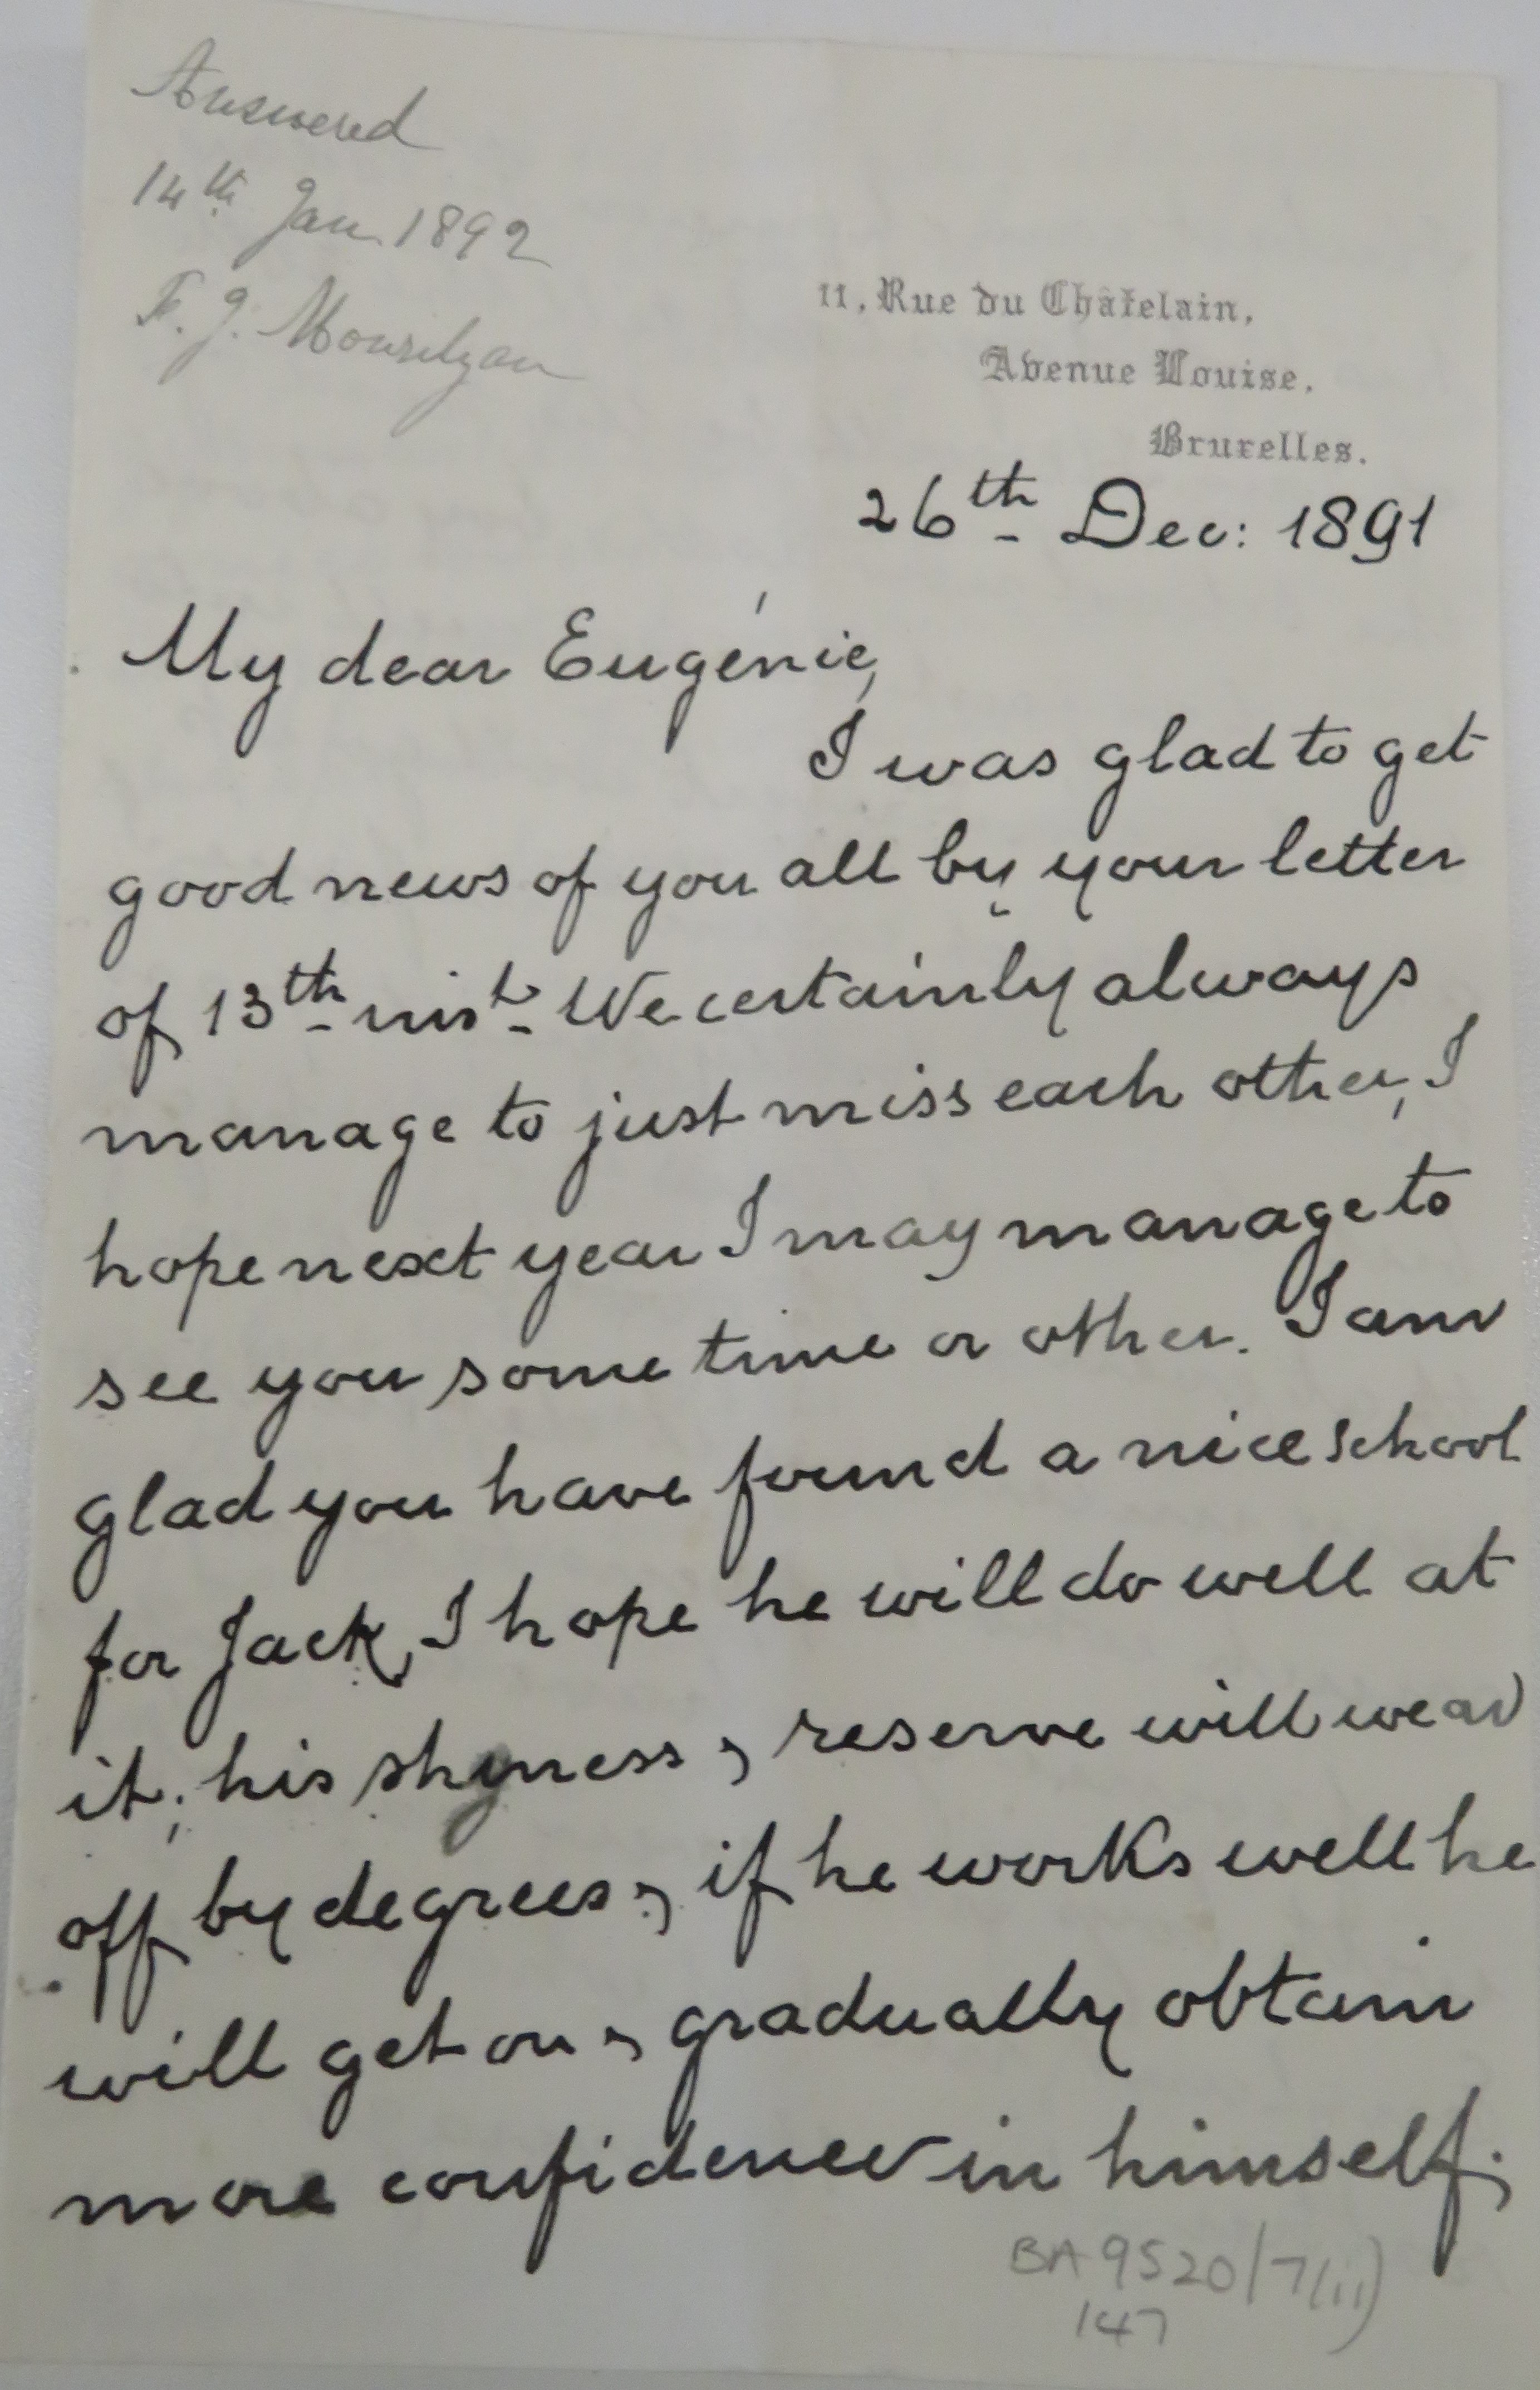 Answered
14th Jan 1892
F. J.
11, Rue du Châtelain,
Avenue Louise,
Bruxelles.
26th Dec: 1891
My dear Eugénie,
I was glad to get
good news of you all by your letter
of 13th inst. We certainly always
manage to just miss each other, I
hope next year I may manage to
see you some time or other. I am
glad you have found a nice school
for Jack, I hope he will do well at
it; his shyness & reserve will wear
off by degrees, & if he works well he
will get on & gradually obtain
more confidence in himself;
BA 9520/7(ii)
147